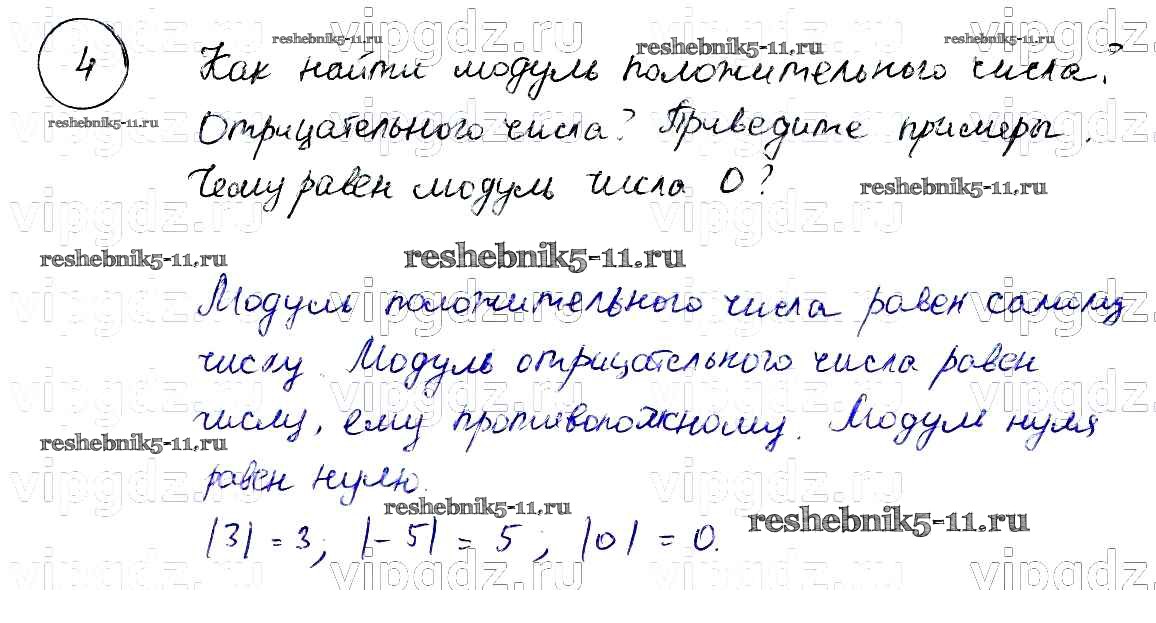 4 Как найти модуль положительного числа?
Отрицательного числа? Приведите примеры.
Чему равен модуль числа 0?
Модуль положительного числа равен самому
числу. Модуль отрицательного числа равен
числу, ему противоположному. Модуль нуля
равен нулю.
|3| = 3; |-5| = 5; |0| = 0.
reshebnik5-11.ru
vipgdz.ru